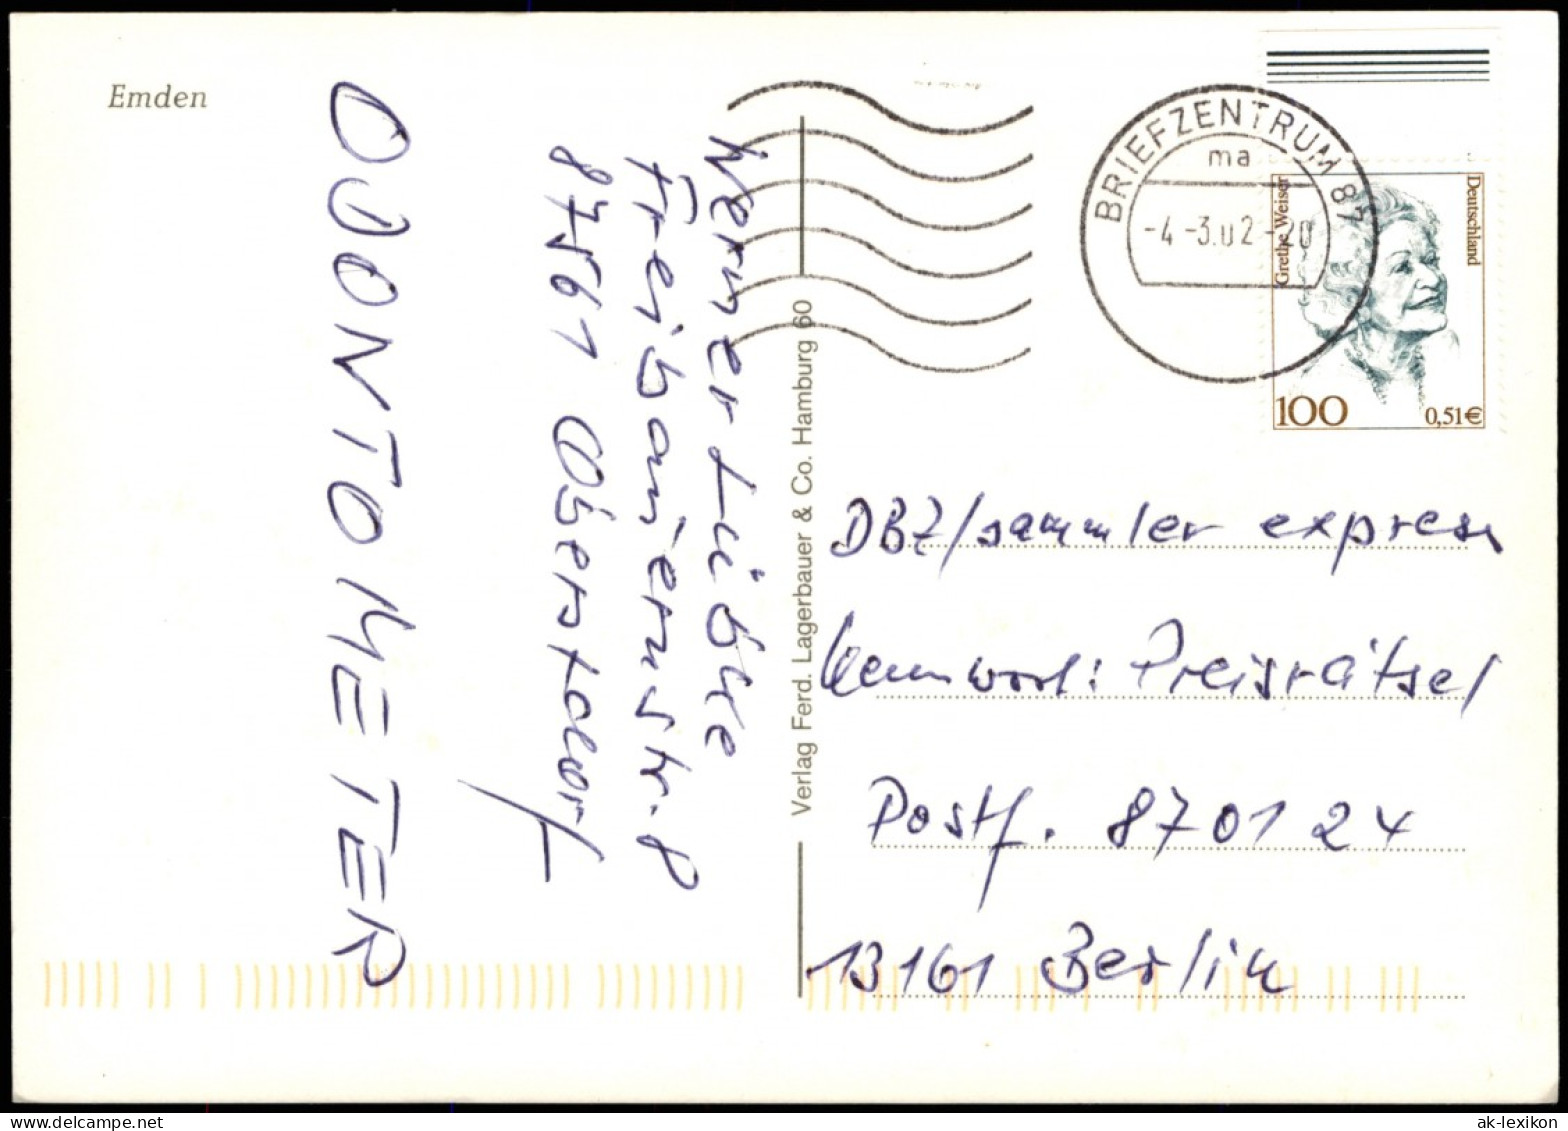 Emden
ODONTOMETER
Werner Lübke
Freibauernstr. 8
87561 Oberstdorf
Verlag Ferd. Lagerbauer & Co. Hamburg 60
BRIEFZENTRUM 87
ma
-4.-3.02-20
Grethe Weiser
Deutschland
100
0,51€
DBZ/sammler express
Kennwort: Preisrätsel
Postf. 870124
13161 Berlin
ak-lexikon.com